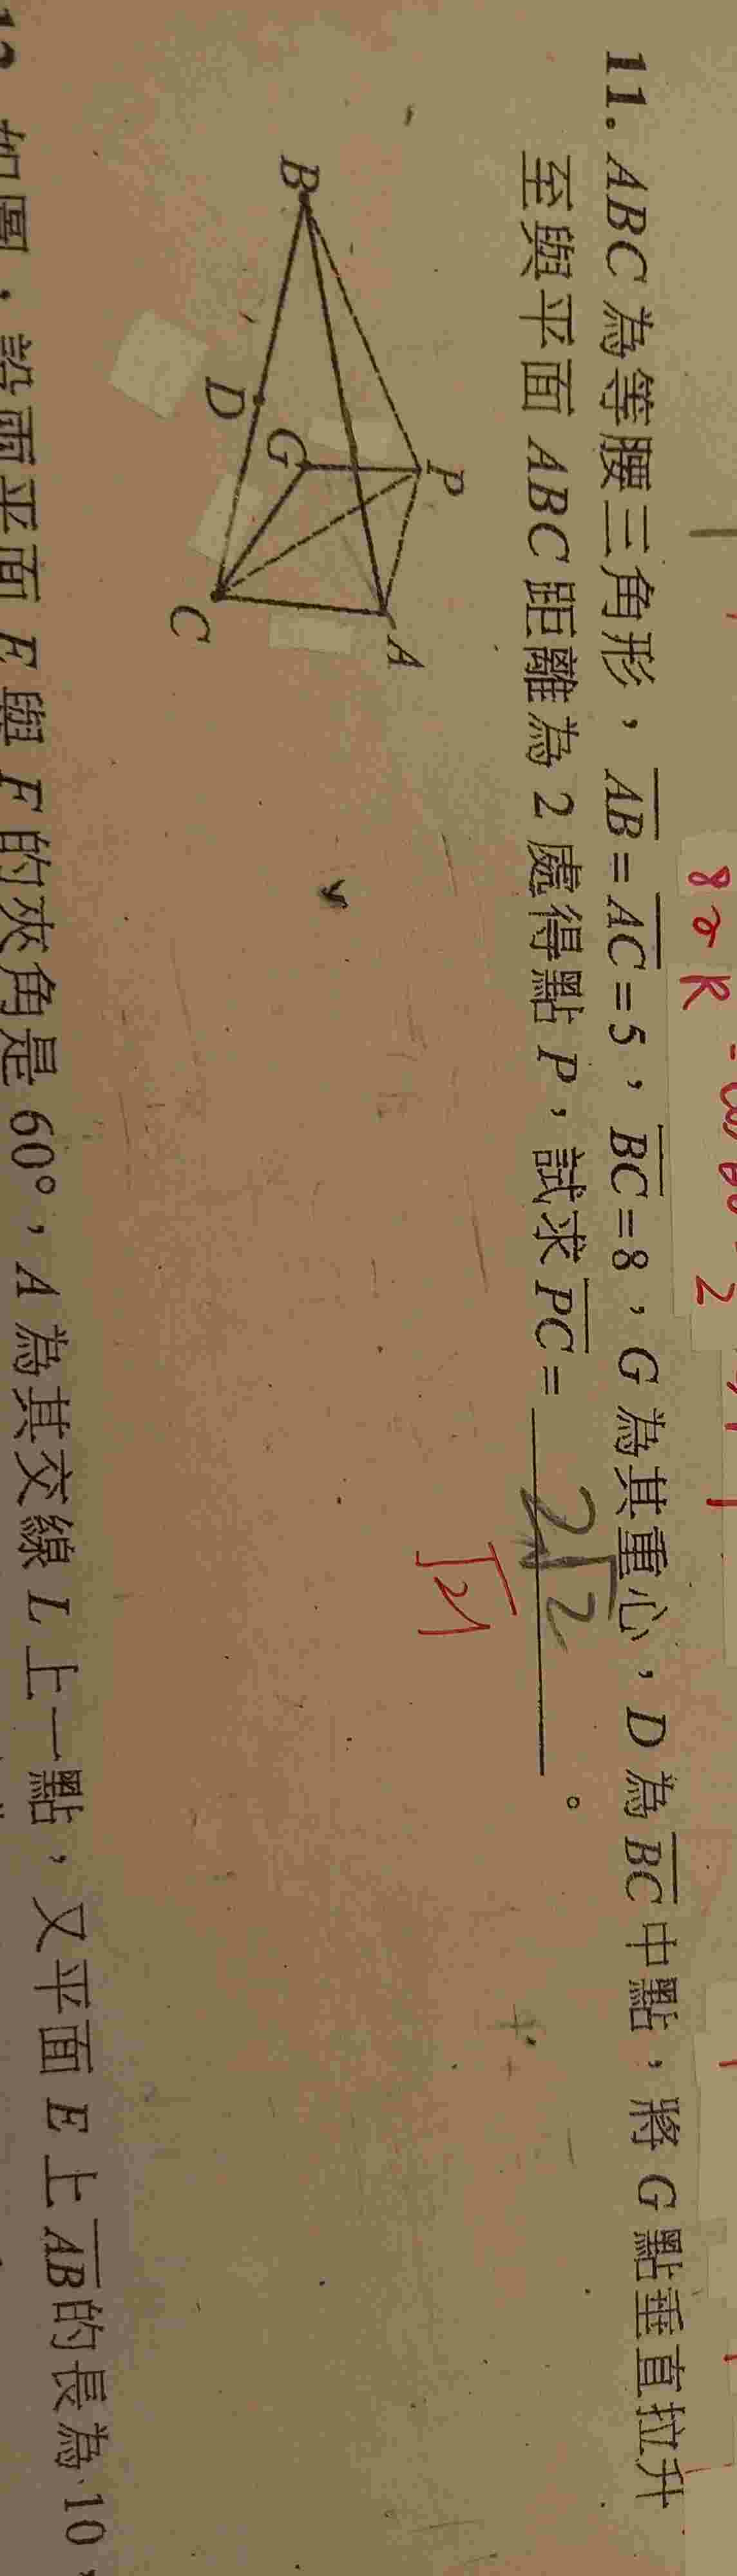 8 or R
2
11. ABC 為等腰三角形，AB = AC = 5，BC = 8，G 為其重心，D 為 BC 中點，將 G 點垂直拉升
至與平面 ABC 距離為 2 處得點 P，試求 PC = 2√2 。
√21
B
P
A
G
D
C
如圖，設兩平面 E 與 F 的夾角是 60°，A 為其交線 L 上一點，又平面 E 上 AB 的長為 10，